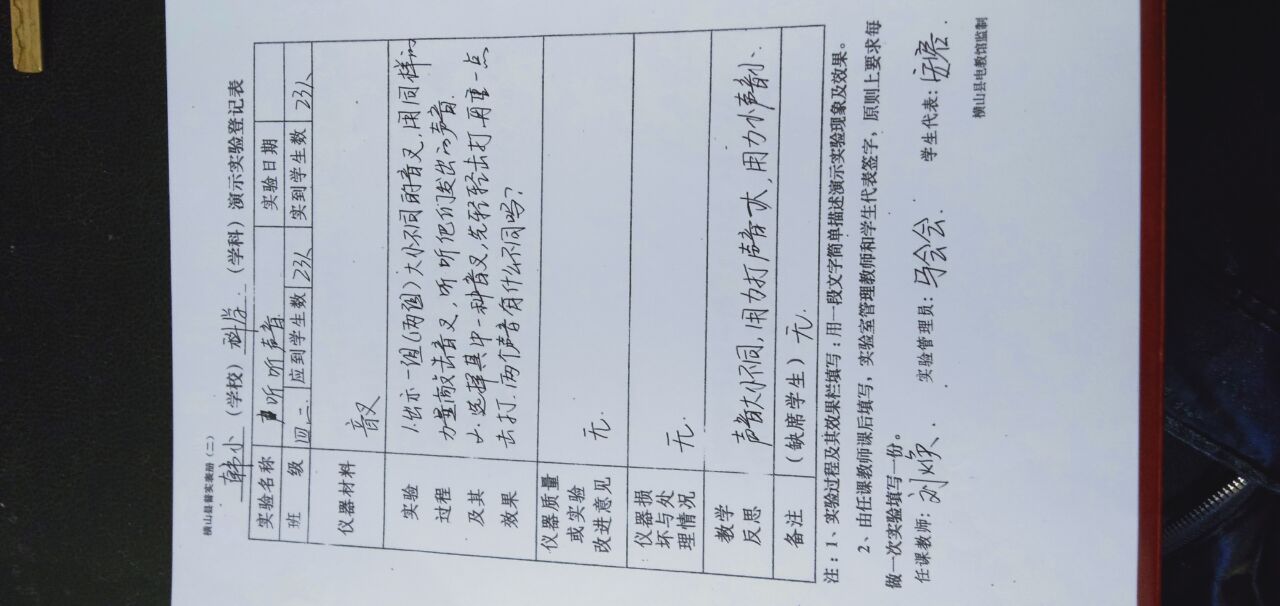 横山县督实表册（二）
韩小（学校）科学（学科）演示实验登记表
实验名称 听听声音 实验日期
班 级 四.二. 应到学生数 23人 实到学生数 23人
仪器材料 音叉
实验过程及其效果 1.出示一组(两个)大小不同的音叉,用同样的
力量敲击音叉,听听它们发出的声音.
2.选择其中一种音叉,先轻轻击打.再重一点
击打.两个声音有什么不同吗?
仪器质量或实验改进意见 无.
仪器损坏与处理情况 无.
教学反思 声音大小不同,用力打声音大,用力小声音小.
备注 (缺席学生) 无.
注:1、实验过程及其效果栏填写:用一段文字简单描述演示实验现象及效果。
2、由任课教师课后填写,实验室管理教师和学生代表签字,原则上要求每
做一次实验填写一份。
任课教师:刘焕. 实验管理员:马会会. 学生代表:
横山县电教馆监制